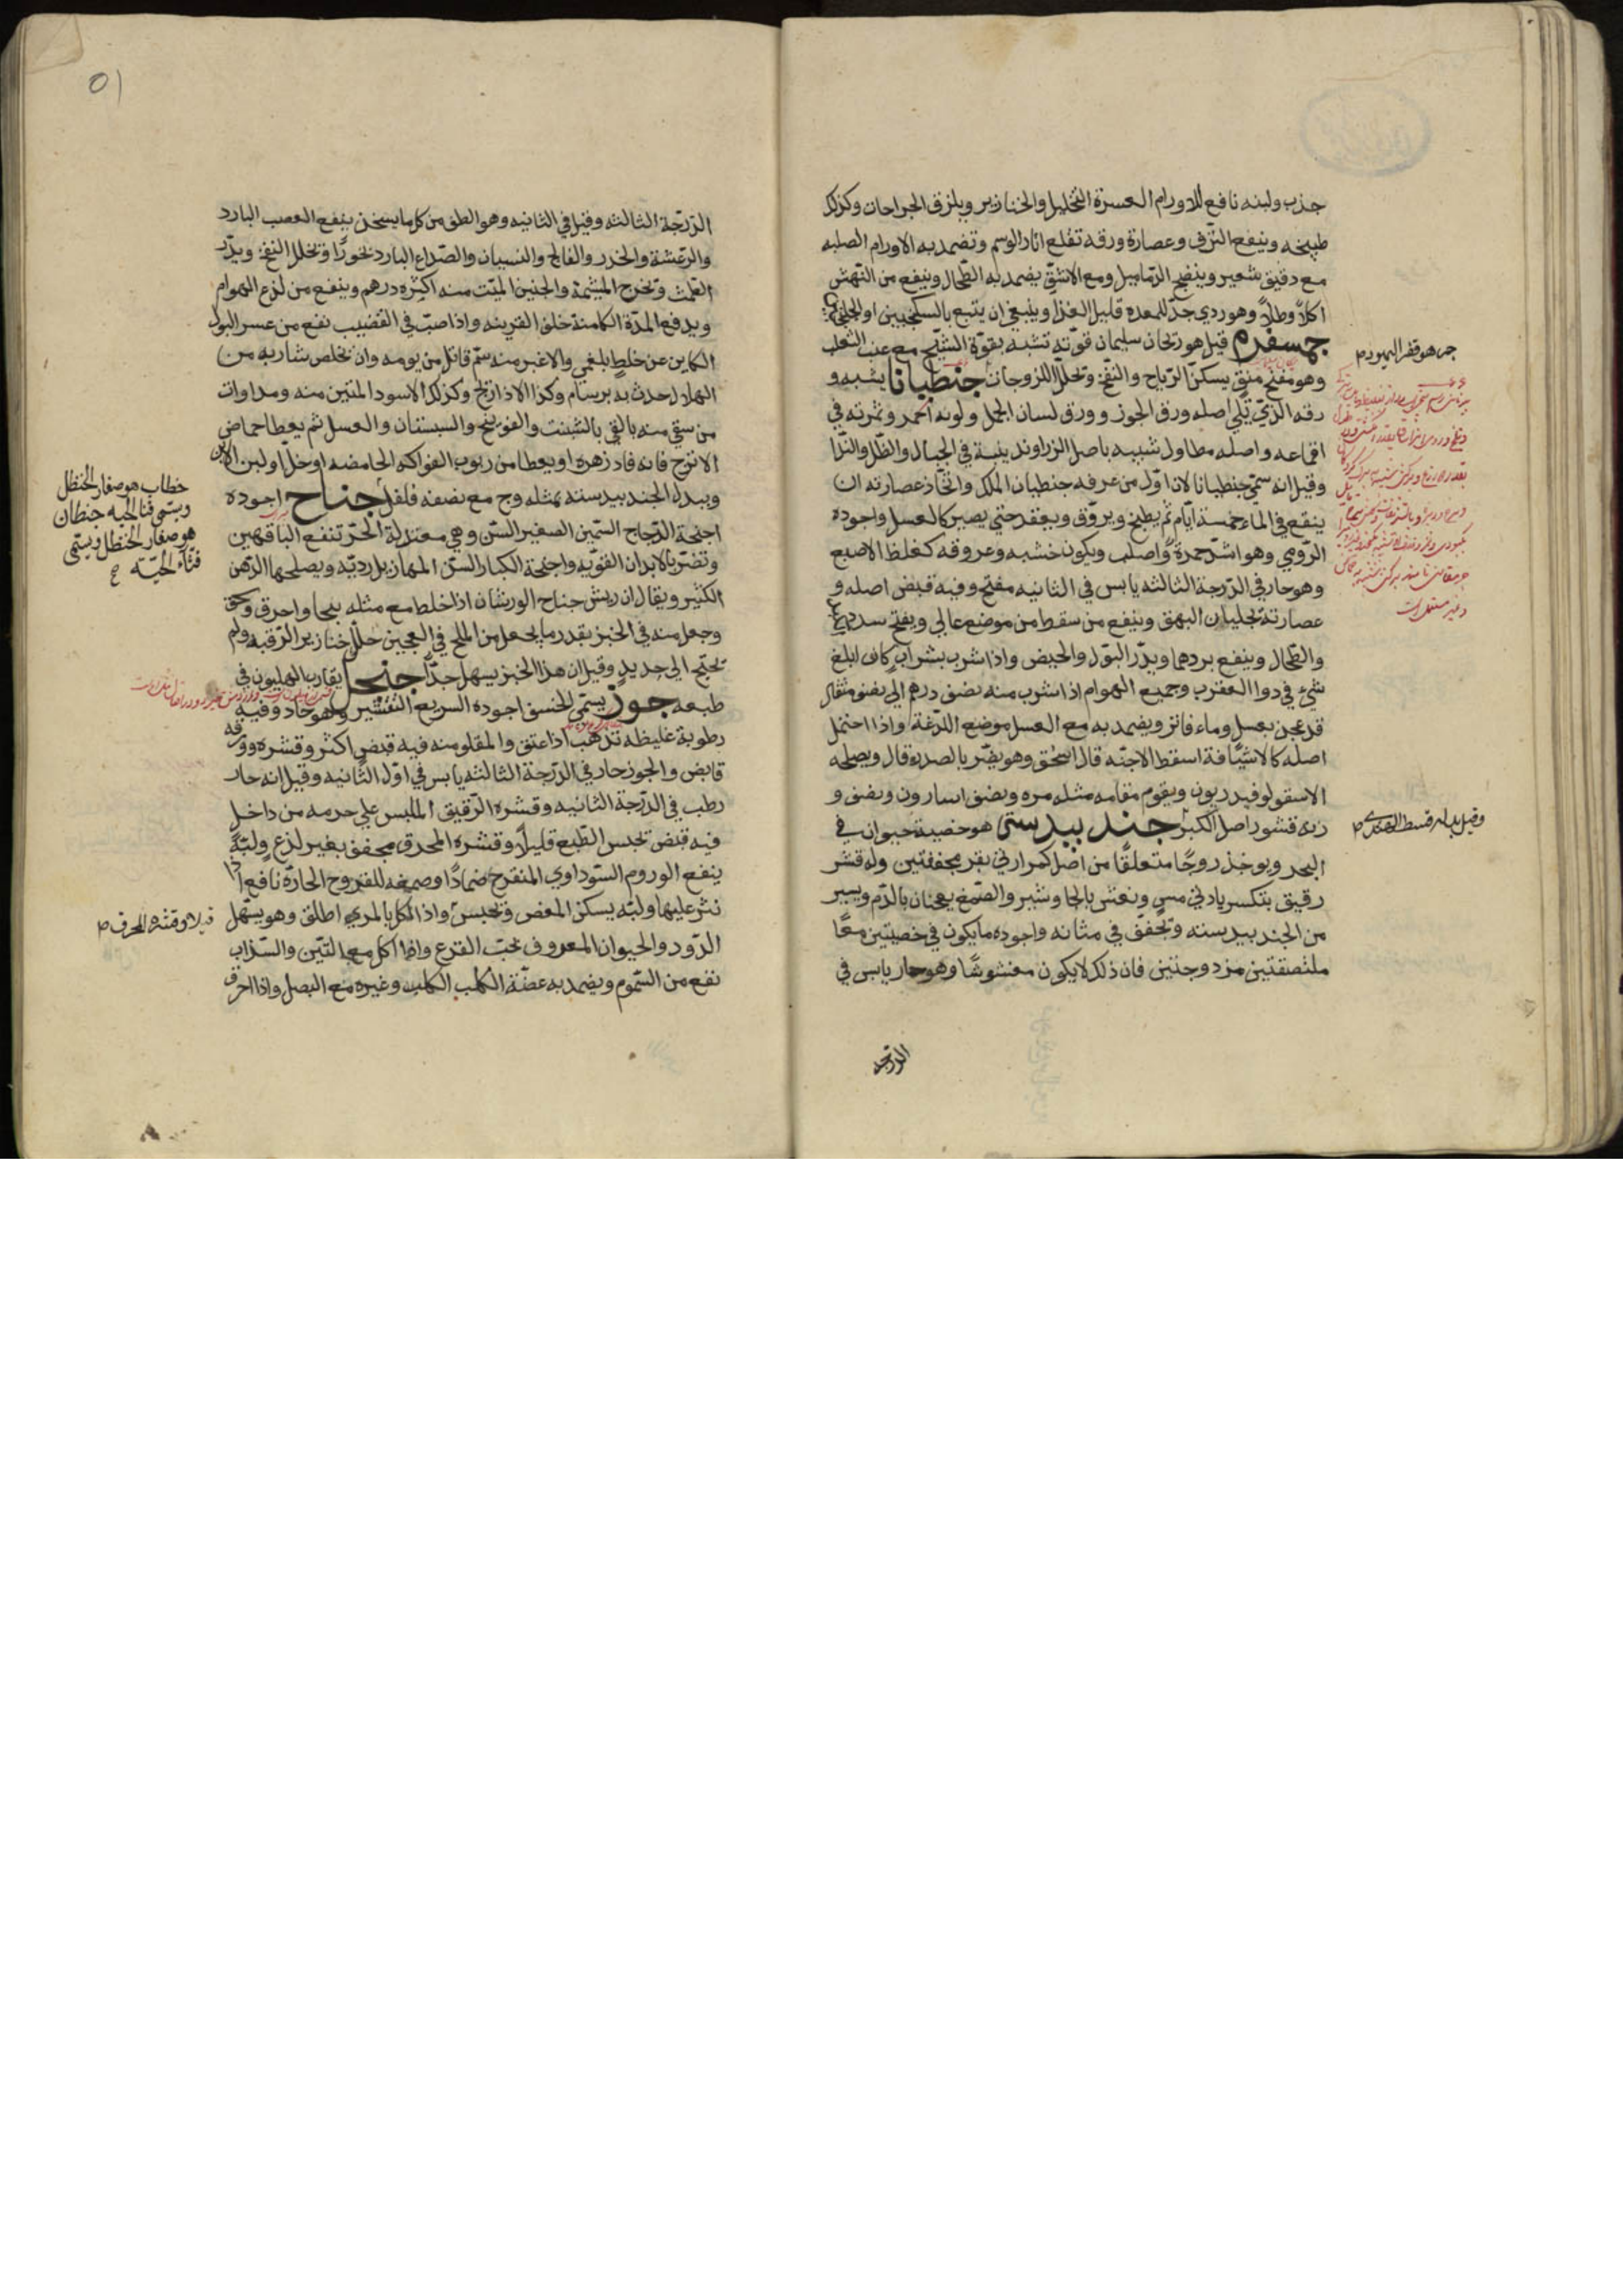 جذب ولبنه نافع للاورام العسرة التحليل والخنازير ويلزق الجراحات وكذلك
طبيخه وينفع النزف وعصارة ورقه تقلع اثار الوسم وتضمد به الاورام الصلبه
مع دقيق شعير وينضج الدماميل ومع الاشق يضمد به الطحال وينفع من النهش
اكلاً وطلاً وهو ردي جدّ للمعده قليل الغذا وينبغي ان يتبع بالسكنجبين او
جمسفرم قيل هو ريحان سليمان قوته تشبه بقوة الشيح مع عنب الثعلب
وهو مفتح منق يسكن الرياح والنفخ وتحلل اللزوجات جنطيانا يشبه و
رقه الذي يلي اصله ورق الجوز وورق لسان الحمل ولونه احمر وثمرته في
اقماعه واصله مطاول شبيه باصل الزراوند ينبت في الجبال والظل والندا
وقيل انه سمي جنطيانا لان اوّل من عرفه جنطيان الملك واتخاذ عصارته ان
ينقع في الماء خمسة ايام ثم يطبخ ويروّق ويعقد حتي يصير كالعسل واجوده
الرومي وهو اشدّ حمرة واصلب ويكون خشبه وعروقه كغلظ الاصبع
وهو حار في الدرجة الثالثه يابس في الثانيه مفتح وفيه قبض اصله و
عصارته تجليان البهق وينفع من سقط من موضع عالي ويفتح سدد
والطحال وينفع بردهما ويدرّ البول والحيض واذا شرب بشراب كان ابلغ
شيء في دوا العقرب وجميع الهوام اذا شرب منه نصف درهم الي نصف مثقال
قد عجن بعسل وماء فاتر ويضمد به مع العسل موضع اللدغة واذا احتمل
اصله كالاشيّافة اسقط الاجنّه قال اسحق وهو يضرّ بالصدر قال ويصلحه
الاسقولوفيدريون ويقوم مقامه مثله مره ونصف اسارون ونصف و
زنه قشور اصل الكبر جند بيدستر هو خصية حيوان في
البحر ويوخذ زوجًا متعلقًا من اصل كمرارتي بقر مجففتين وله قشر
رقيق يتكسر بادني مس ويغش بالجاوشير والصمغ يعجنان بالدم ويسير
من الجندبيدسته وتجفف في مثانه واجوده ما يكون في خصيتين معًا
ملتصقتين مزدوجتين فان ذلك لا يكون مغشوشًا وهو حار يابس في
الدرجه
هو قفر اليهود
وقيل بدله قسط
٥١
الدّرجة الثالثه وقيل في الثانيه وهو الطف من كل ما يسخن ينفع العصب البارد
والرّعشة والخدر والفالج والنسيان والصّداع البارد بخورًا وتحلل النفخ ويدرّ
الطمث وتخرج المشيمة والجنين الميّت منه اكثره درهم وينفع من لدغ الهوام
ويدفع المدّة الكامنة خلف القرينه واذا صبّ في القضيب نفع من عسر البول
الكاين عن خلط بلغمي والاغبر منه سمّ قاتل من يومه وان تخلص شاربه من
الهلاك حدث به برسام وكذا الاذارنج وكذلك الاسود المنتن منه ومداوات
من سقي منه بالقي بالشبت والفوتنج والسبستان والعسل ثم يعطا حماض
الاترج فانه فادزهره او يعطا من ربوب الفواكه الحامضه او خل او لبن
ويبدل الجند بيدسته بمثله وج مع نصفه فلفل جناح اجوده
اجنحة الدّجاج السّمين الصغير السّن وهي معتدلة الحرّ تنفع الناقهين
وتضرّ بالابدان القويّه واجنحة الكبار السنّ المهازيل رديّه ويصلحها الدّهن
الكثير ويقال ان ريش جناح الورشان اذا خلط مع مثله بنجا واحرق وسحق
وجعل منه في الخبز بقدر ما يجعل من الملح في العجين حلّل خنازير الرّقبه ولم
تحتج الي حديد وقيل ان هذا الخبز يسهل جدّاً جنجل يقارب الهليون في
طبعه جوز يسمي الخسف اجوده السريع التقشير وهو حاد وفيه
رطوبة غليظه تذهب اذا عتق والمقلو منه فيه قبض اكثر وقشره وورقه
قابض والجوز حار في الدّرجة الثالثه يابس في اوّل الثّانيه وقيل انه حار
رطب في الدّرجة الثانيه وقشره الرّقيق الملبس علي جرمه من داخل
فيه قبض تحبس الطبع قليلاً وقشره المحرق مجفف بغير لذع ولبّه
ينفع الورم السّوداوي المتقرح ضمادًا وصمغه للقروح الحارّة نافع
نثر عليها ولبّه يسكن المغص وتحبس واذا اكل بالمري اطلق وهو يسهل
الدّود والحيوان المعروف بحبّ القرع واذا اكل مع التّين والسّذاب
نفع من السّموم ويضمد به عضّة الكلب الكلب وغيره مع البصل واذا احرق
خطاب هو صغار الحنظل
ويسمي قثا الحيه جنطان
هو صغار الحنظل ويسمي
قثاء الحيّه
وقشره المحرق